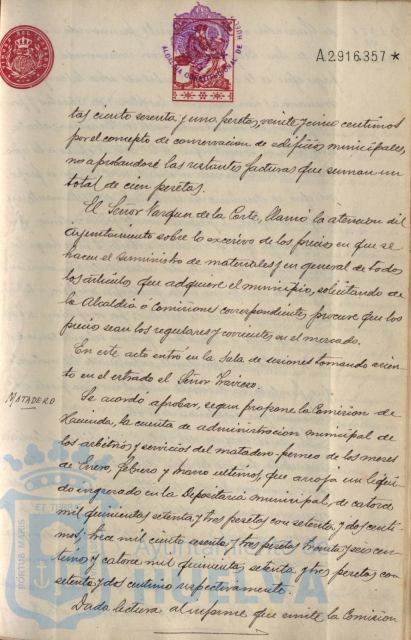 A.2.916.357 *
tas ciento sesenta y una pesetas, veinte y cinco centimos
por el concepto de conservacion de edificios municipales,
no aprobandose las restantes facturas que suman un
total de cien pesetas.
El Señor Vazquez de la Corte, llamó la atencion del
Ayuntamiento sobre lo excesivo de los precios en que se
hacen el suministro de materiales y en general de todos
los articulos que adquiere el municipio, solicitando de
la Alcaldia ó Comisiones correspondientes, procure que los
precios sean los regulares y corrientes en el mercado.
En este acto entro en la Sala de sesiones tomando asien-
to en el estrado el Señor
MATADERO
Se acordó aprobar, segun propone la Comision de
Hacienda, la cuenta de administracion municipal de
los arbitrios y servicios del matadero de los meses
de Enero, febrero y marzo ultimos, que arroja un liqui-
do ingresado en la depositaria municipal, de catorce
mil quinientas setenta y tres pesetas con setenta y dos centi-
mos, trece mil ciento y tres pesetas treinta y seis cen-
timos y catorce mil quinientas setenta y tres pesetas con
setenta y dos centimos respectivamente.
Dada lectura al informe que emite la Comision
PORTUS MARIS
ET T
Ayuntamiento
HUELVA